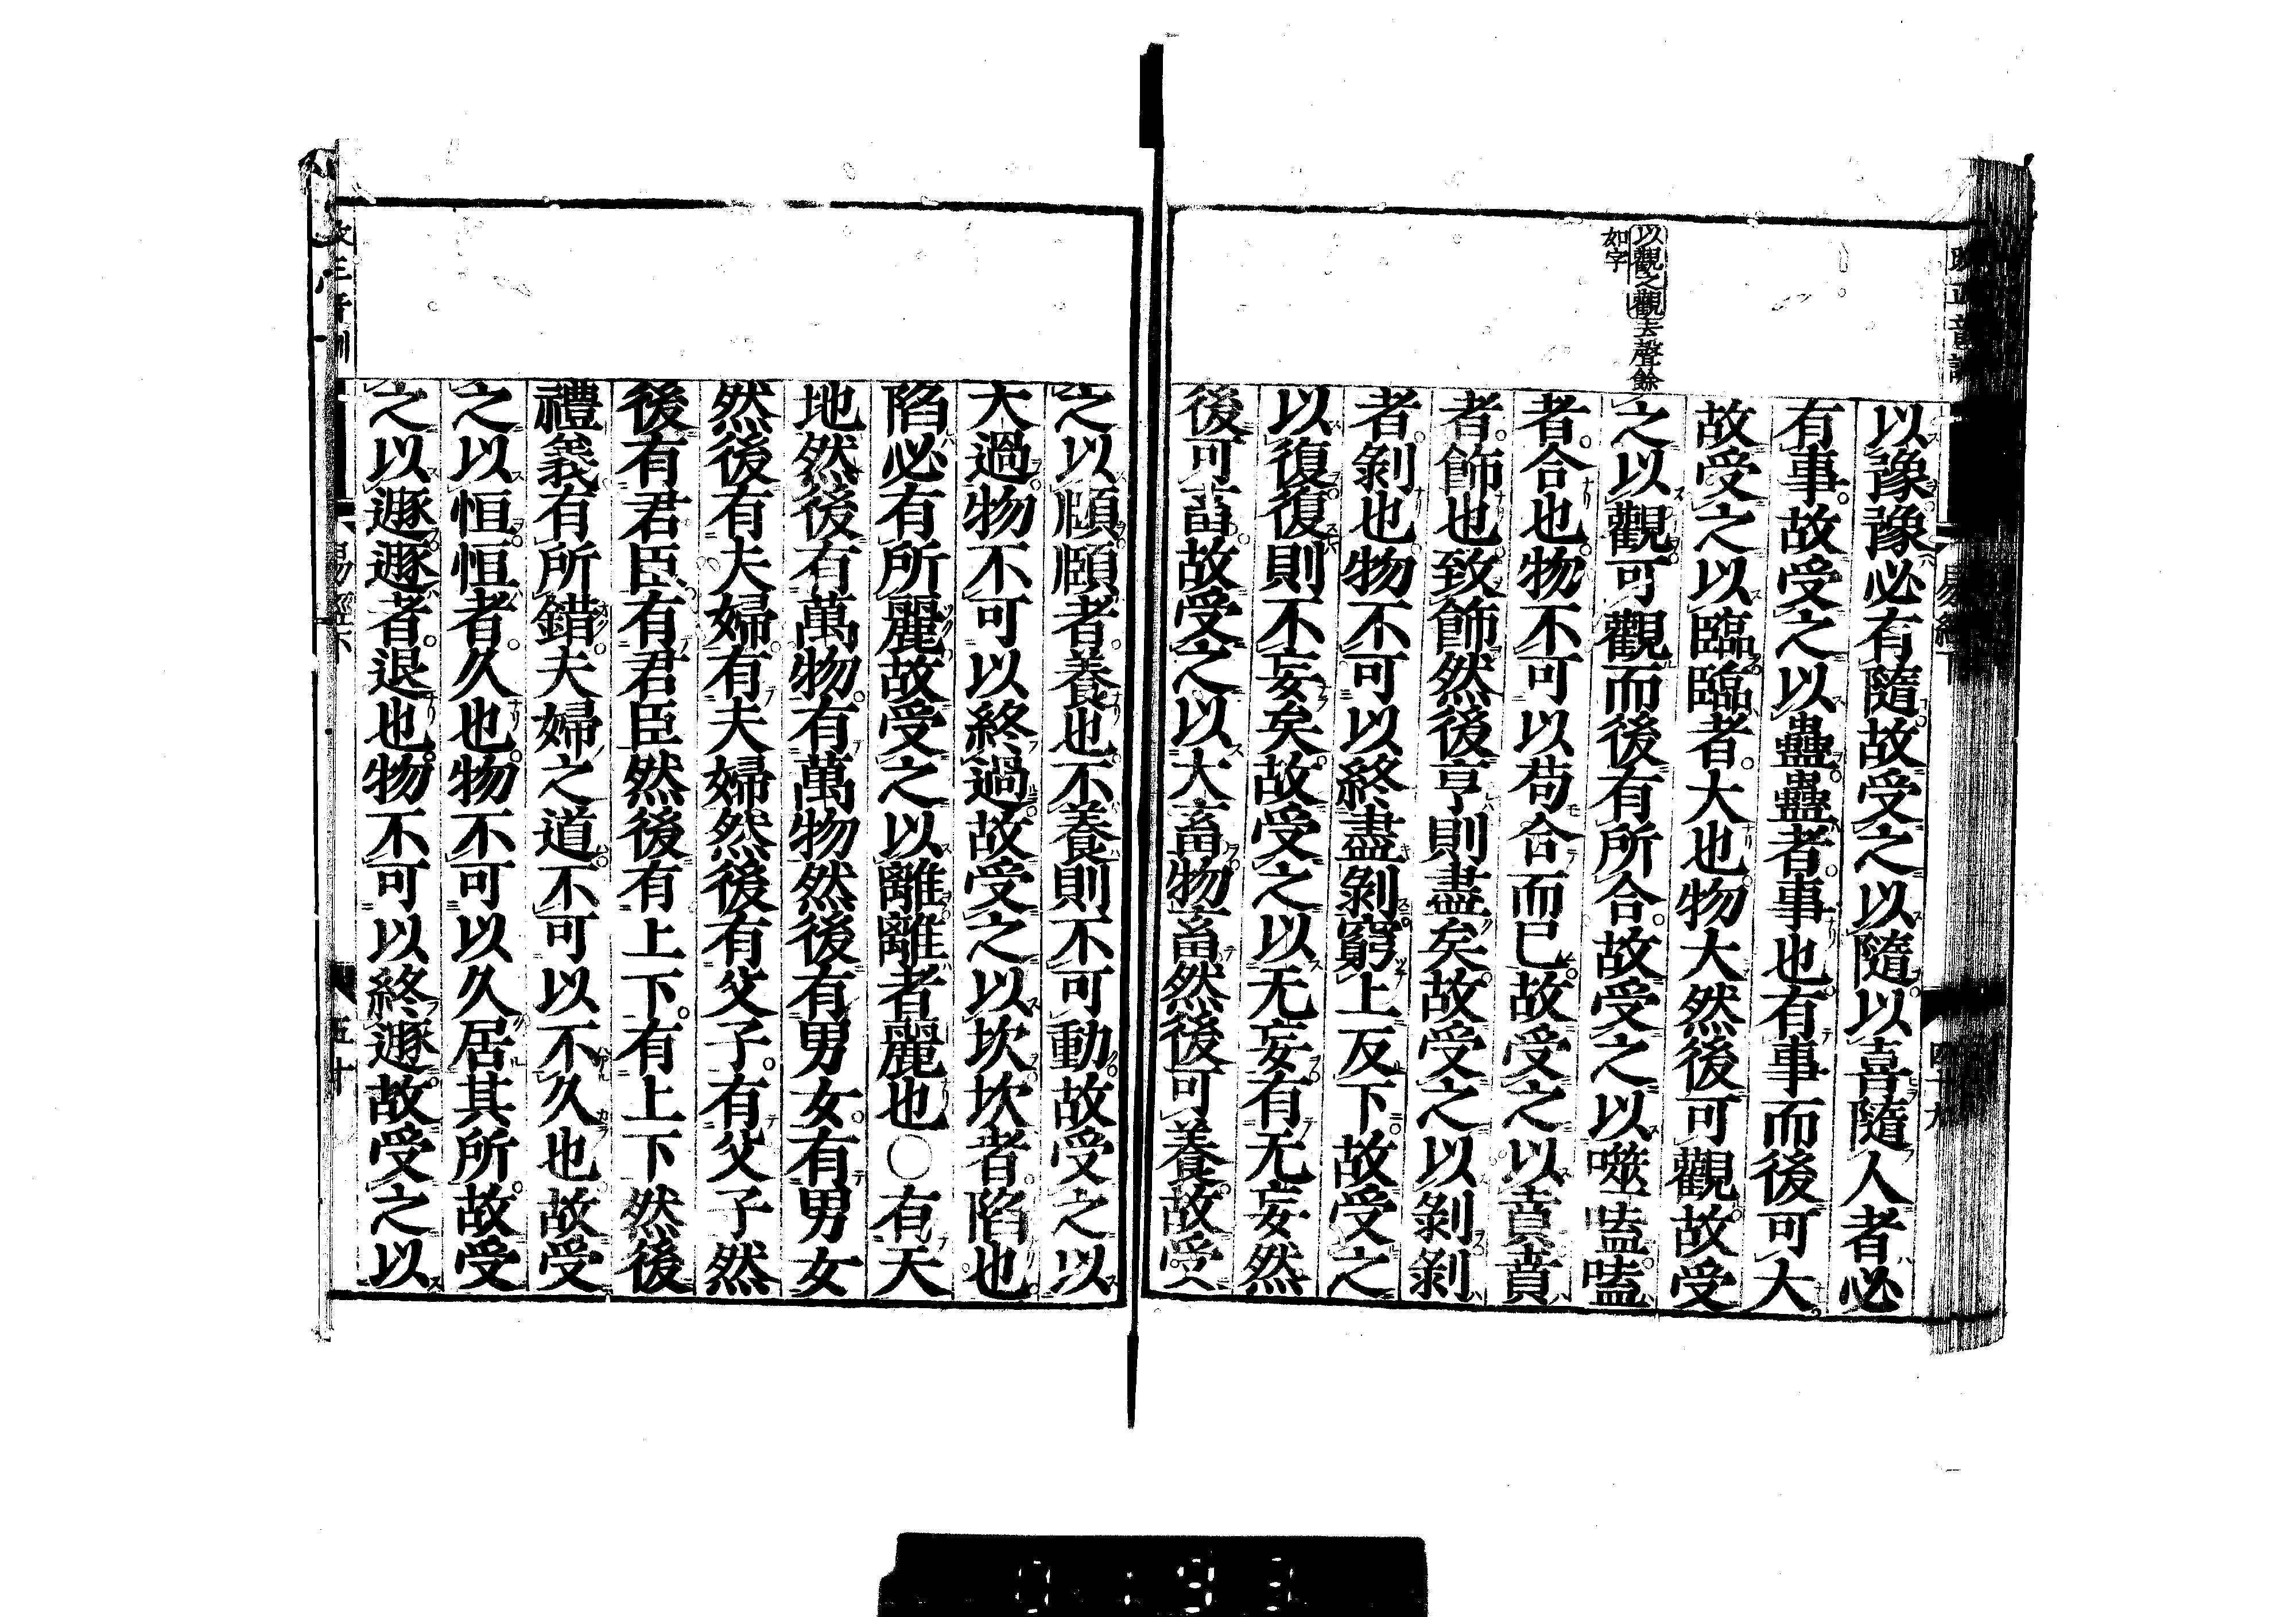 以觀之觀去聲餘
如字
以豫豫必有隨故受之以隨以喜隨人者必
有事故受之以蠱蠱者事也有事而後可大
故受之以臨臨者大也物大然後可觀故受
之以觀可觀而後有所合故受之以噬嗑嗑
者合也物不可以苟合而已故受之以賁賁
者飾也致飾然後亨則盡矣故受之以剝剝
者剝也物不可以終盡剝窮上反下故受之
以復復則不妄矣故受之以无妄有无妄然
後可畜故受之以大畜物畜然後可養故受
之以頤頤者養也不養則不可動故受之以
大過物不可以終過故受之以坎坎者陷也
陷必有所麗故受之以離離者麗也○有天
地然後有萬物有萬物然後有男女有男女
然後有夫婦有夫婦然後有父子有父子然
後有君臣有君臣然後有上下有上下然後
禮義有所錯夫婦之道不可以不久也故受
之以恒恒者久也物不可以久居其所故受
之以遯遯者退也物不可以終遯故受之以
易經下
五十